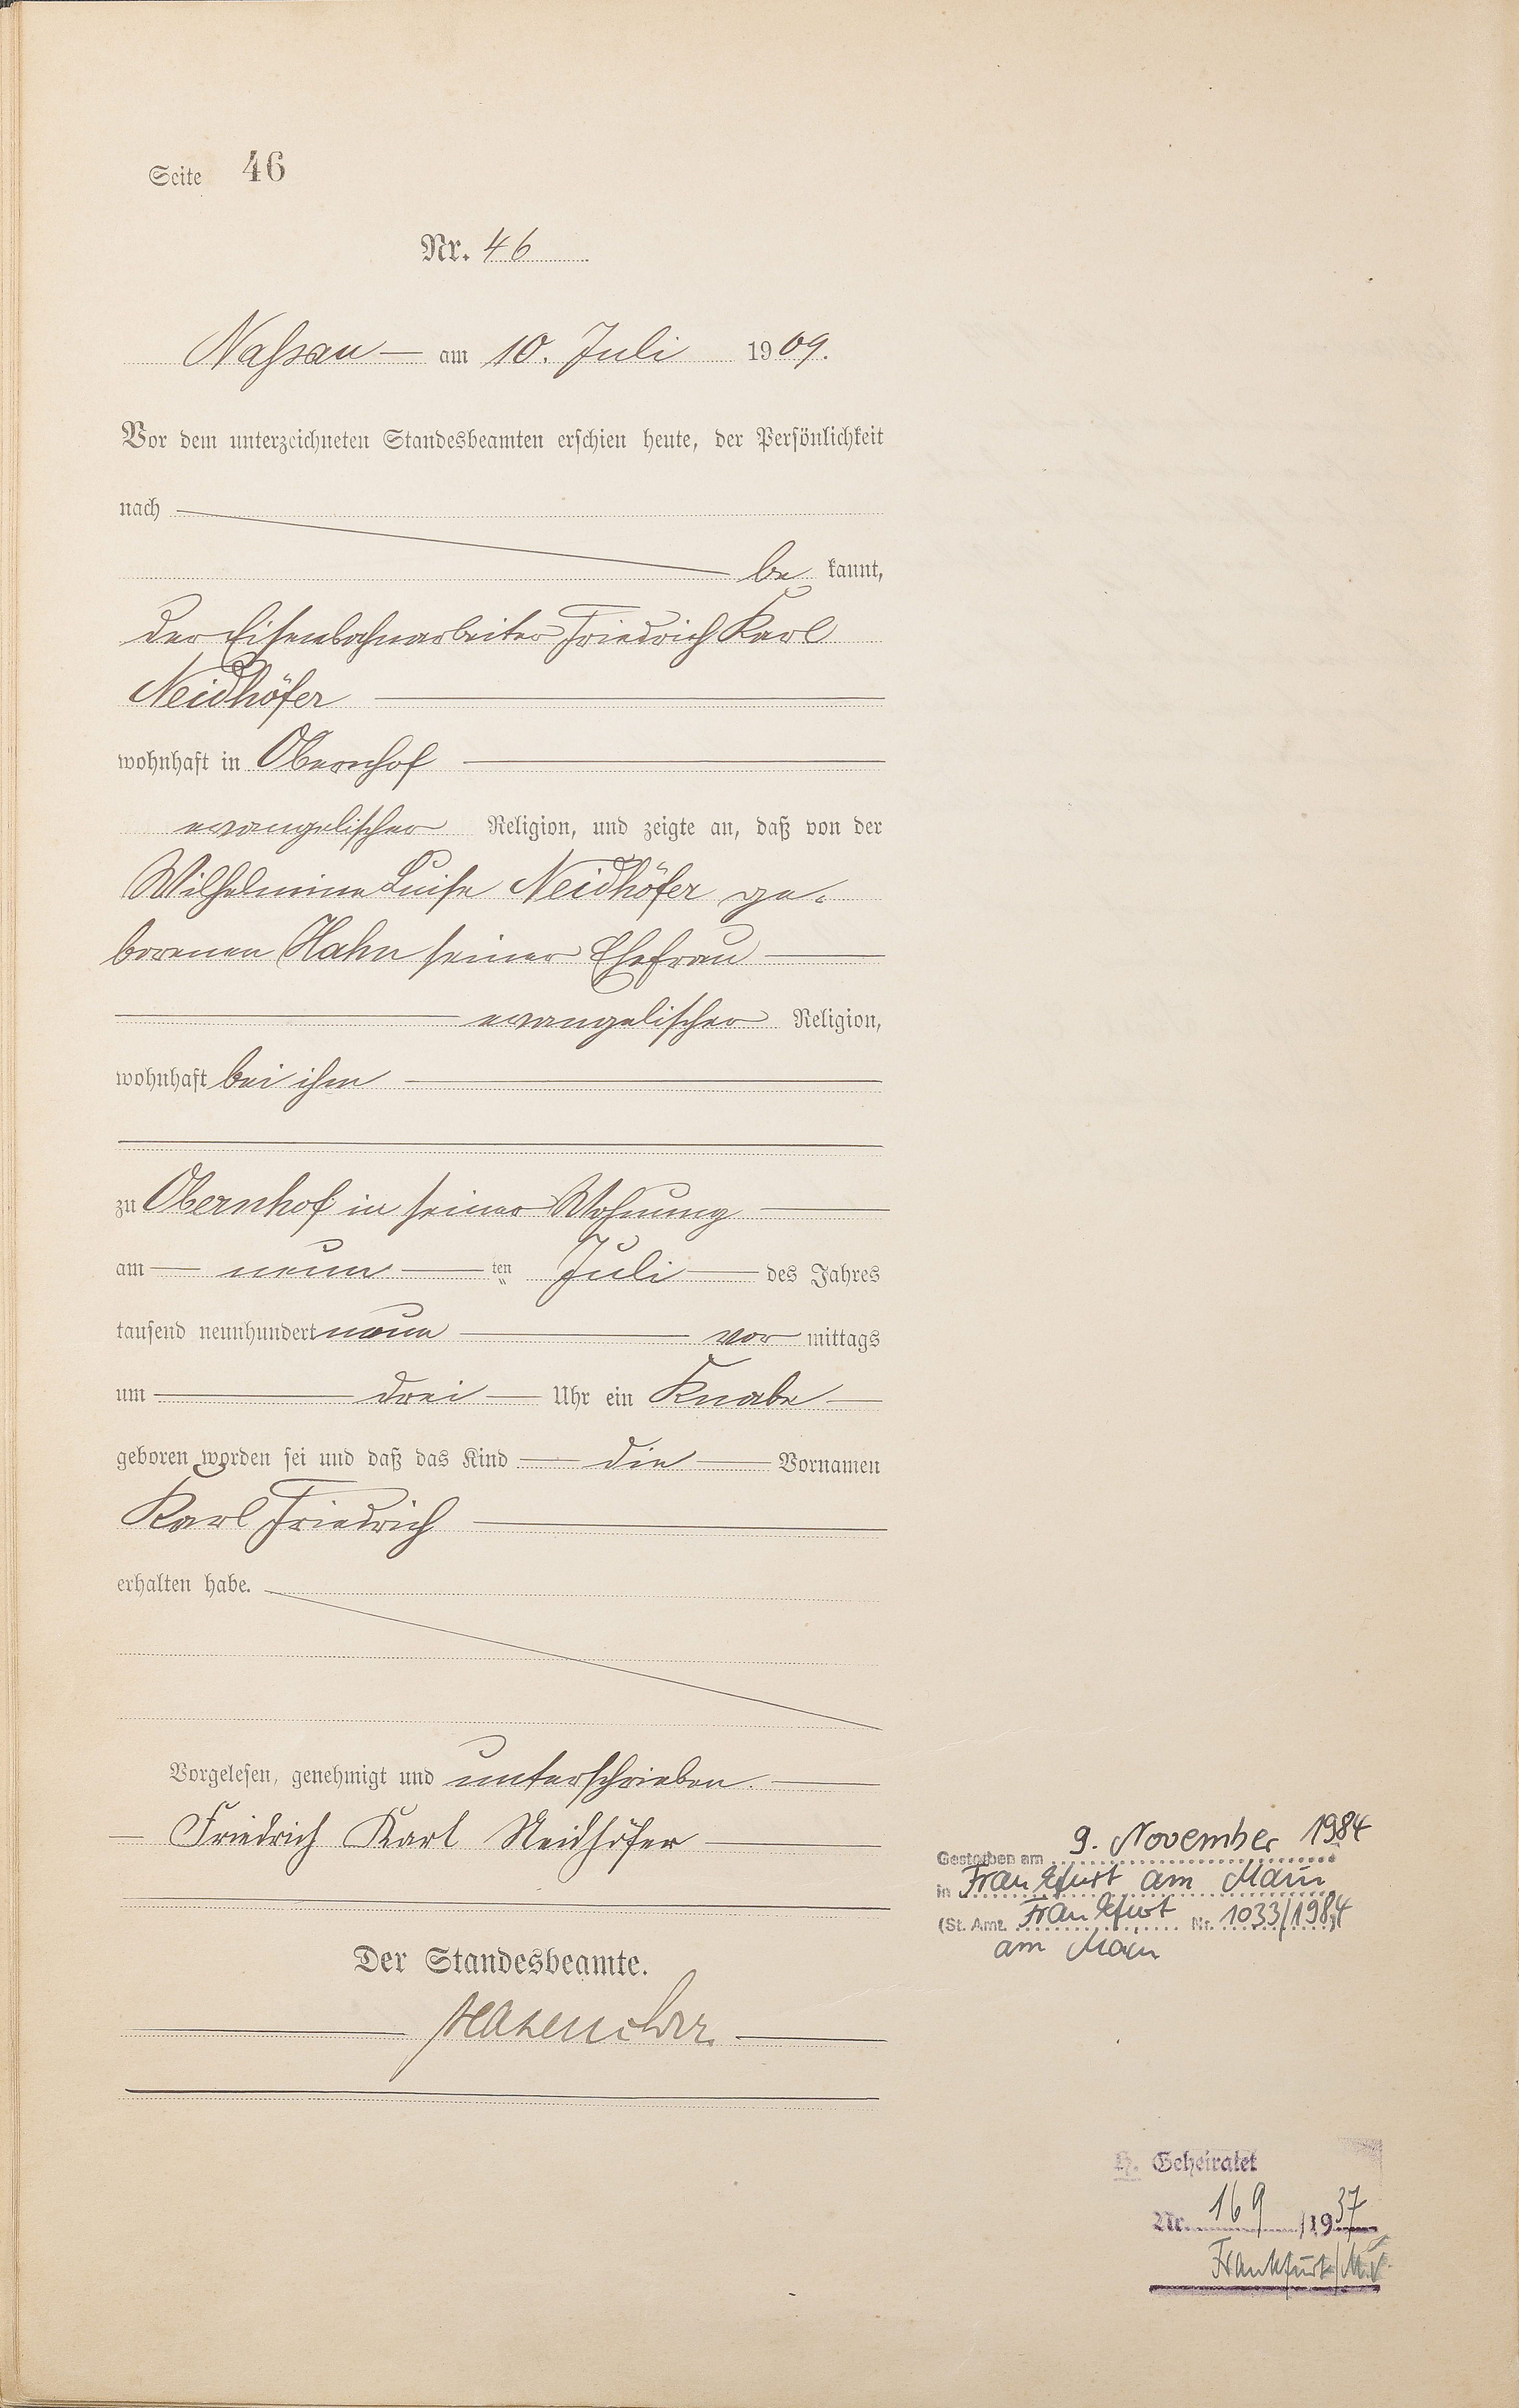 Seite 46
Nr. 46
Nassau am 10. Juli 1909.
Vor dem unterzeichneten Standesbeamten erschien heute, der Persönlichkeit
nach
be kannt,
der Eisenbahnarbeiter Friedrich Karl
Neidhöfer
wohnhaft in Obernhof
evangelischer Religion, und zeigte an, daß von der
Wilhelmine Luise Neidhöfer ge-
borenen Hahn seiner Ehefrau
evangelischer Religion,
wohnhaft bei ihm
zu Obernhof in seiner Wohnung
am neun ten Juli des Jahres
tausend neunhundert neun vor mittags
um drei Uhr ein Knabe
geboren worden sei und daß das Kind die Vornamen
Karl Friedrich
erhalten habe.
Vorgelesen, genehmigt und unterschrieben.
Friedrich Karl Neidhöfer
Der Standesbeamte.
Gestorben am 9. November 1984
in Frankfurt am Main
(St. Amt. Frankfurt Nr. 1033/1984)
am Main
H. Geheiratet
Nr. 169 /1937
Frankfurt/M.